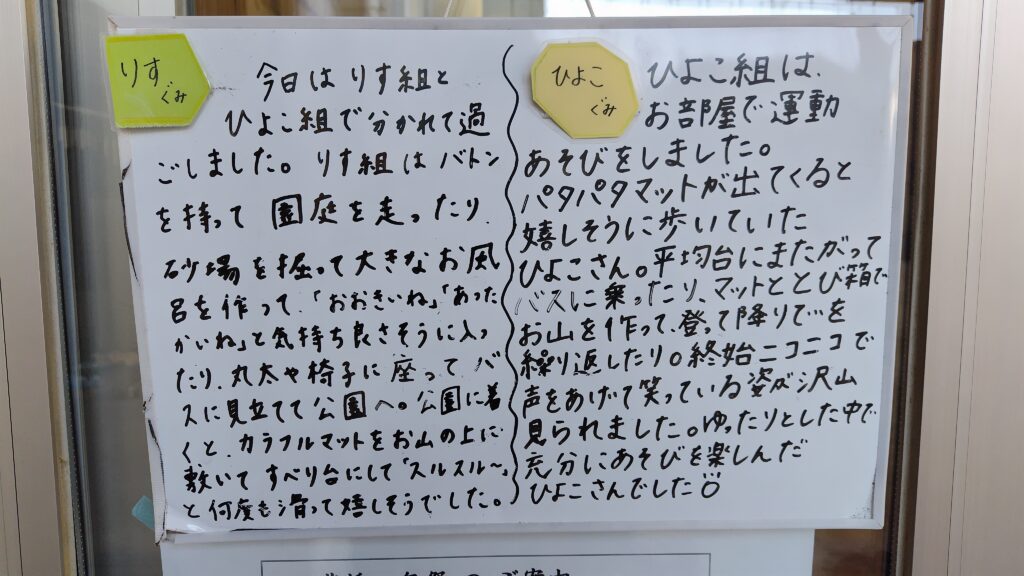 りすぐみ
今日は りす組と
ひよこ組で分かれて過
ごしました。りす組はバトン
を持って 園庭を走ったり、
砂場を掘って大きなお風
呂を作って、「おおきいね」「あった
かいね」と気持ち良さそうに入っ
たり、丸太や椅子に座ってバ
スに見立てて公園へ。公園に着
くと、カラフルマットをお山の上に
敷いてすべり台にして「スルスル～」
と何度も滑って嬉しそうでした。
ひよこぐみ
ひよこ組は、
お部屋で運動
あそびをしました。
パタパタマットが出てくると
嬉しそうに歩いていた
ひよこさん。平均台にまたがって
バスに乗ったり、マットととび箱で
お山を作って、登って降りて…を
繰り返したり。終始ニコニコで
声をあげて笑っている姿が沢山
見られました。ゆったりとした中で
充分にあそびを楽しんだ
ひよこさんでした